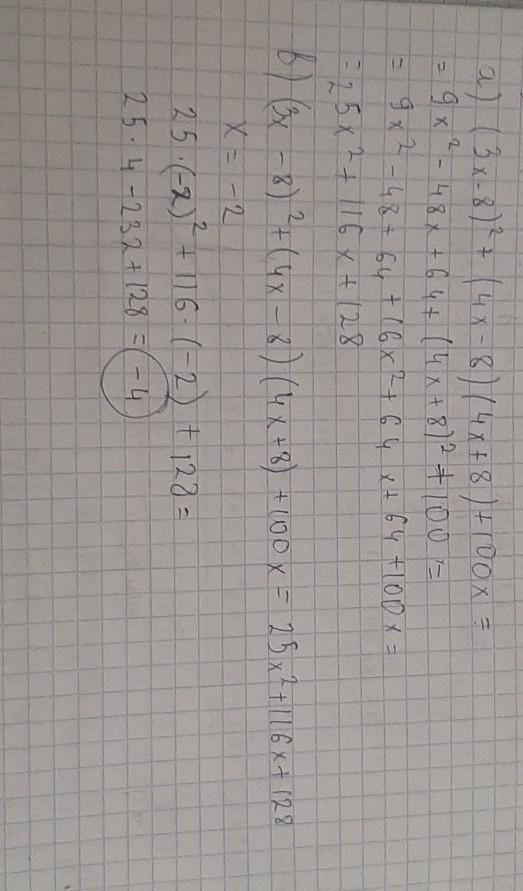 a) (3x-8)² + (4x-8)(4x+8)+100x =
= 9x² - 48x+64+(4x+8)²+100=
= 9x² - 48+64+16x²+64x+64+100x=
= 25x²+116x+128
b) (3x-8)²+(4x-8)(4x+8)+100x=25x²+116x+128
x=-2
25·(-2)²+116·(-2)+128=
25·4-232+128=-4